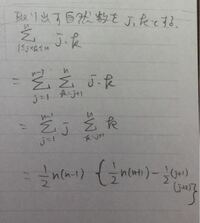 取り出す自然数を j, k とする.
Σ_{1≤j<k≤n} j・k
= Σ_{j=1}^{n-1} Σ_{k=j+1}^{n} j・k
= Σ_{j=1}^{n-1} j Σ_{k=j+1}^{n} k
= 1/2 n(n-1) { 1/2 n(n+1) - 1/2 (j+1)(j+2) }